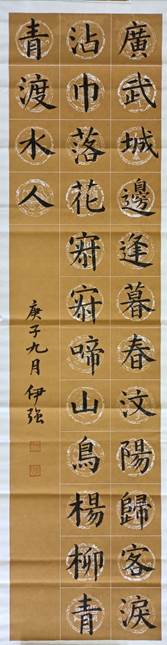 廣武城邊逢暮春汶陽歸客淚
沾巾落花寂寂啼山鳥楊柳青
青渡水人
庚子九月伊强